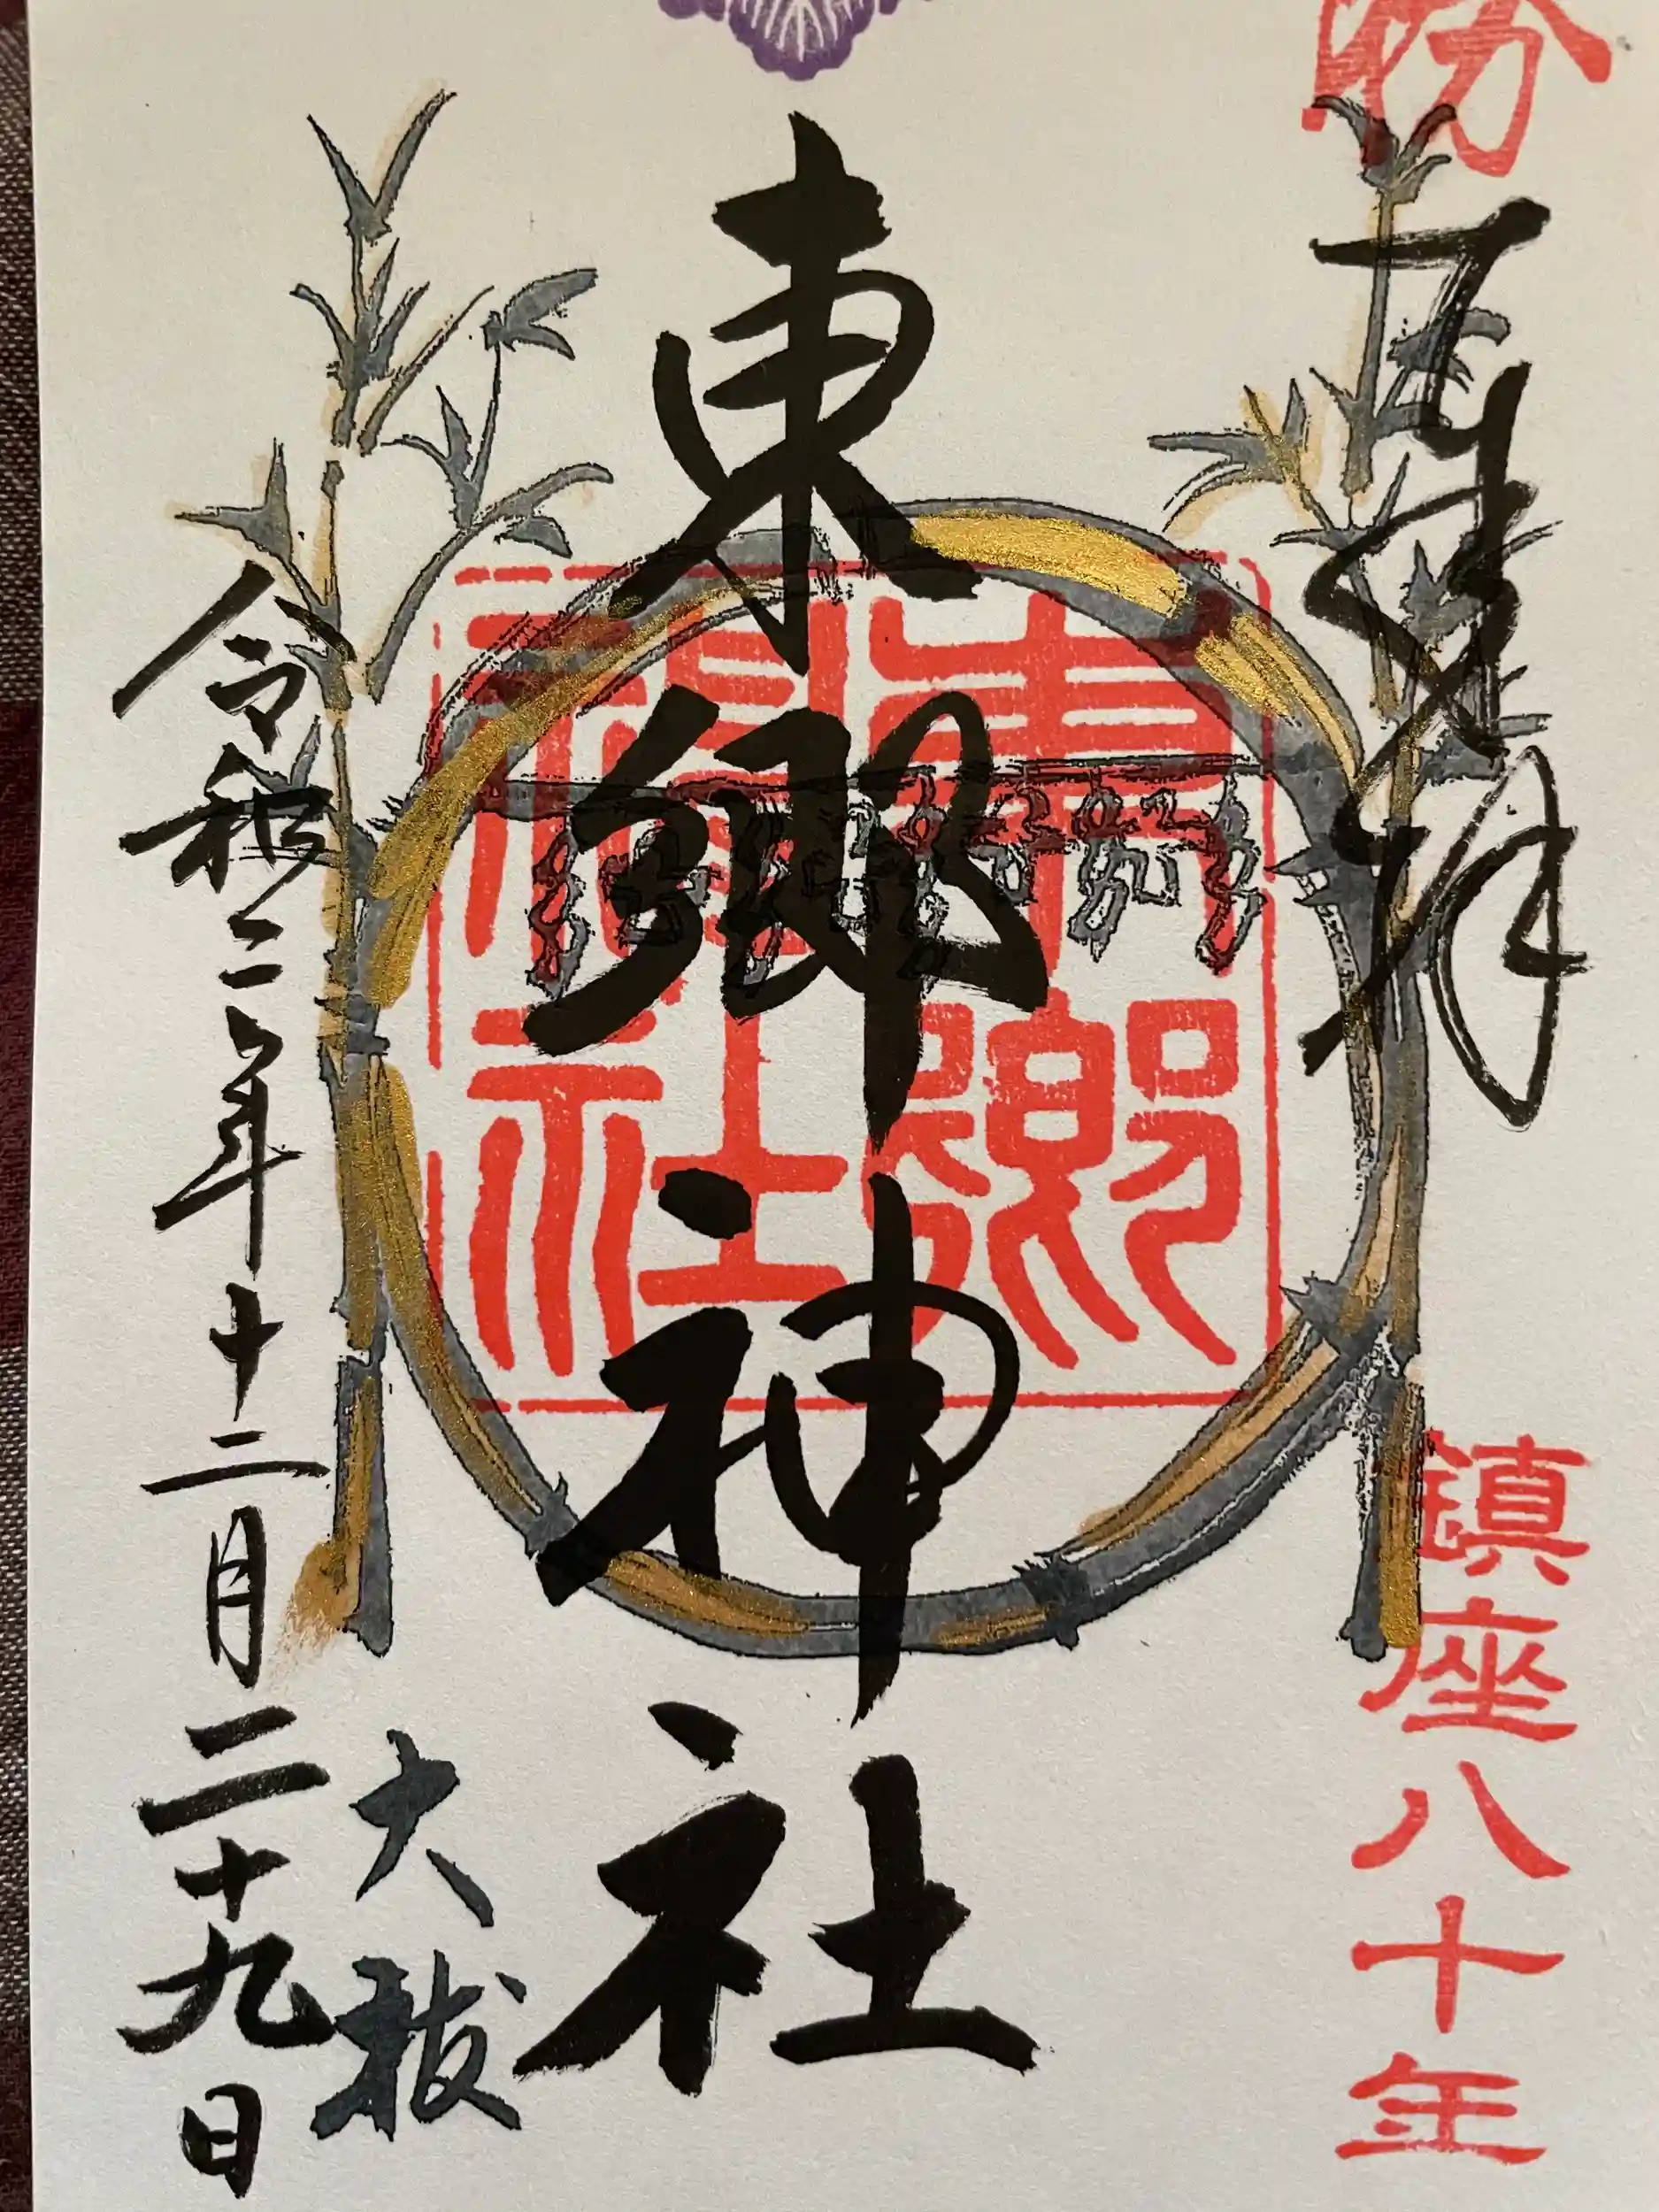 奉拝
鎮座八十年
東郷神社
東郷
神社
大祓
令和二年十二月二十九日